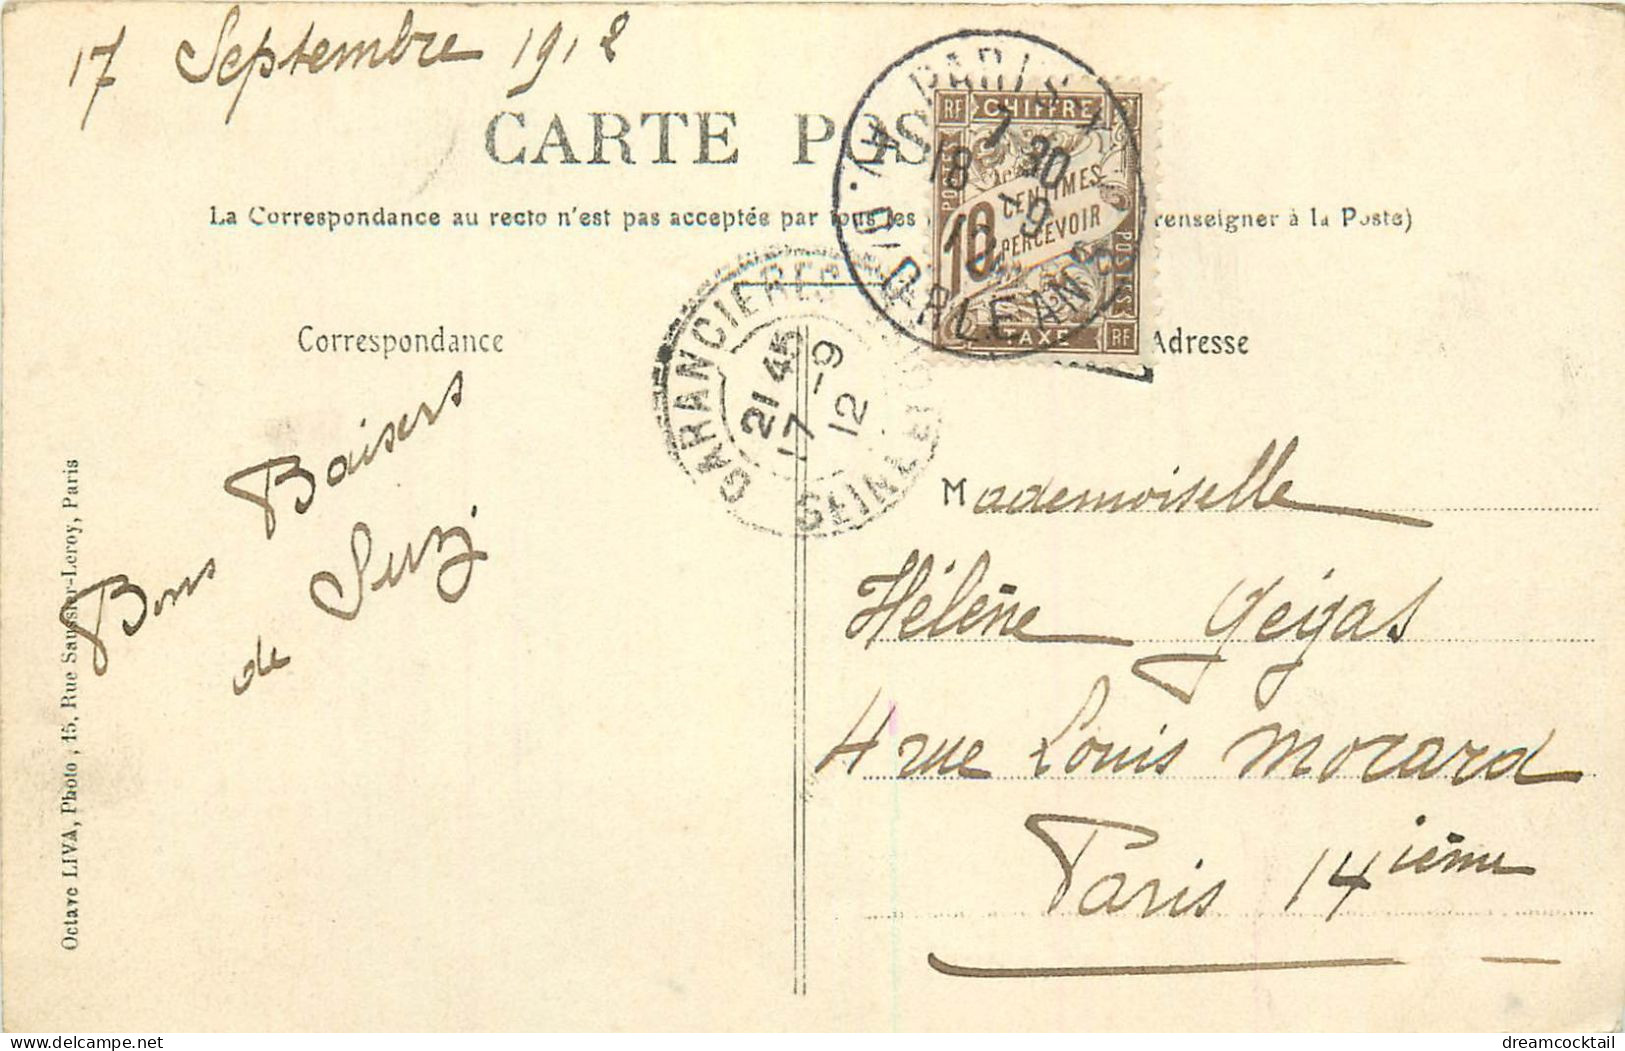 17 Septembre 1912
CARTE POS
La Correspondance au recto n'est pas acceptée par tous les
renseigner à la Poste)
PARIS
AV. D'ORLEANS
7 30
18 9
RF CHIFFRE
CENTIMES
10
PERCEVOIR
POSTES
TAXE RF
GARANCIERES
SEINE ET
21 45
17 -9
12
Correspondance
Adresse
Bons Baisers
de Suzy
Mademoiselle
Hélène Gégas
4 rue Louis Morard
Paris 14ième
Octave LIVA, Photo, 15, Rue Saussier-Leroy, Paris
dreamcocktail